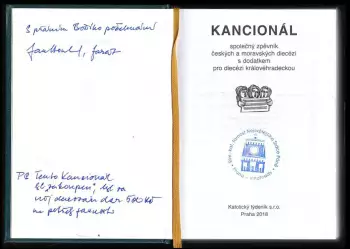 S přáním Božího požehnání
farář
PS Tento Kancionál
lze zakoupit, byl za
něj darován dar 500 Kč
na potřeby farnosti
KANCIONÁL
společný zpěvník
českých a moravských diecézí
s dodatkem
pro diecézi královéhradeckou
Katolický týdeník s.r.o.
Praha 2018